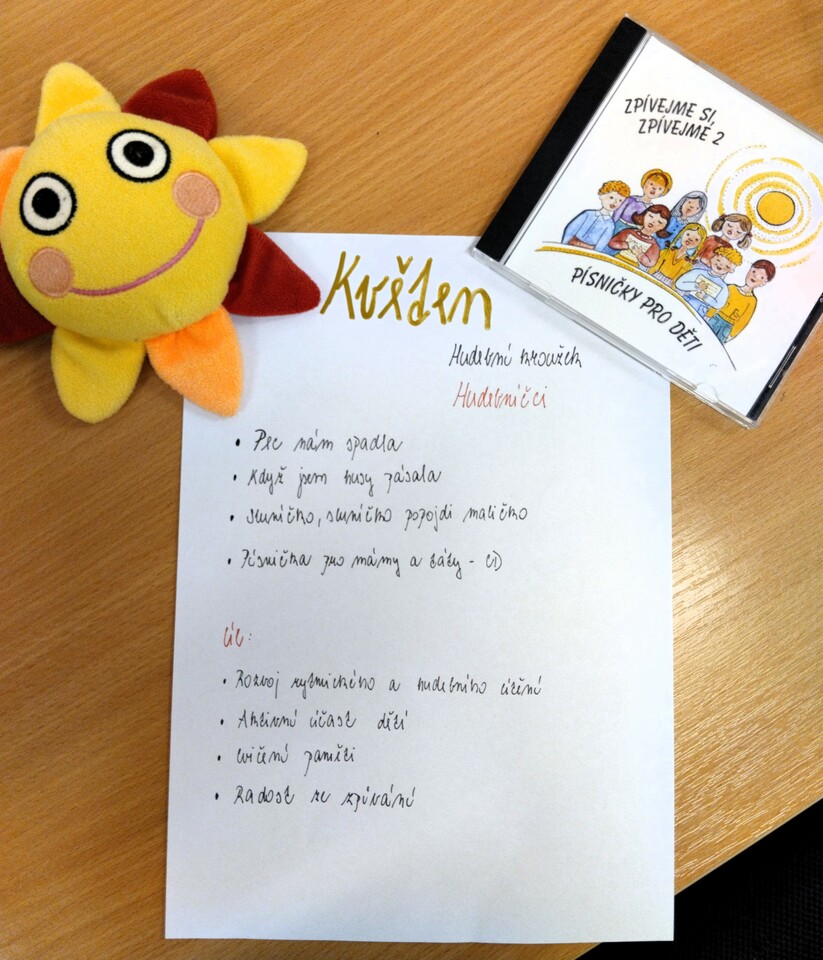 ZPÍVEJME SI,
ZPÍVEJME 2
PÍSNIČKY PRO DĚTI
Květen
Hudební kroužek
Hudebníčci
• Pec nám spadla
• Když jsem husy pásala
• Sluníčko, sluníčko popojdi maličko
• Písnička pro mámy a táty - CD
Cíl:
• Rozvoj rytmického a hudebního cítění
• Aktivní účast dětí
• Cvičení paměti
• Radost ze zpívání